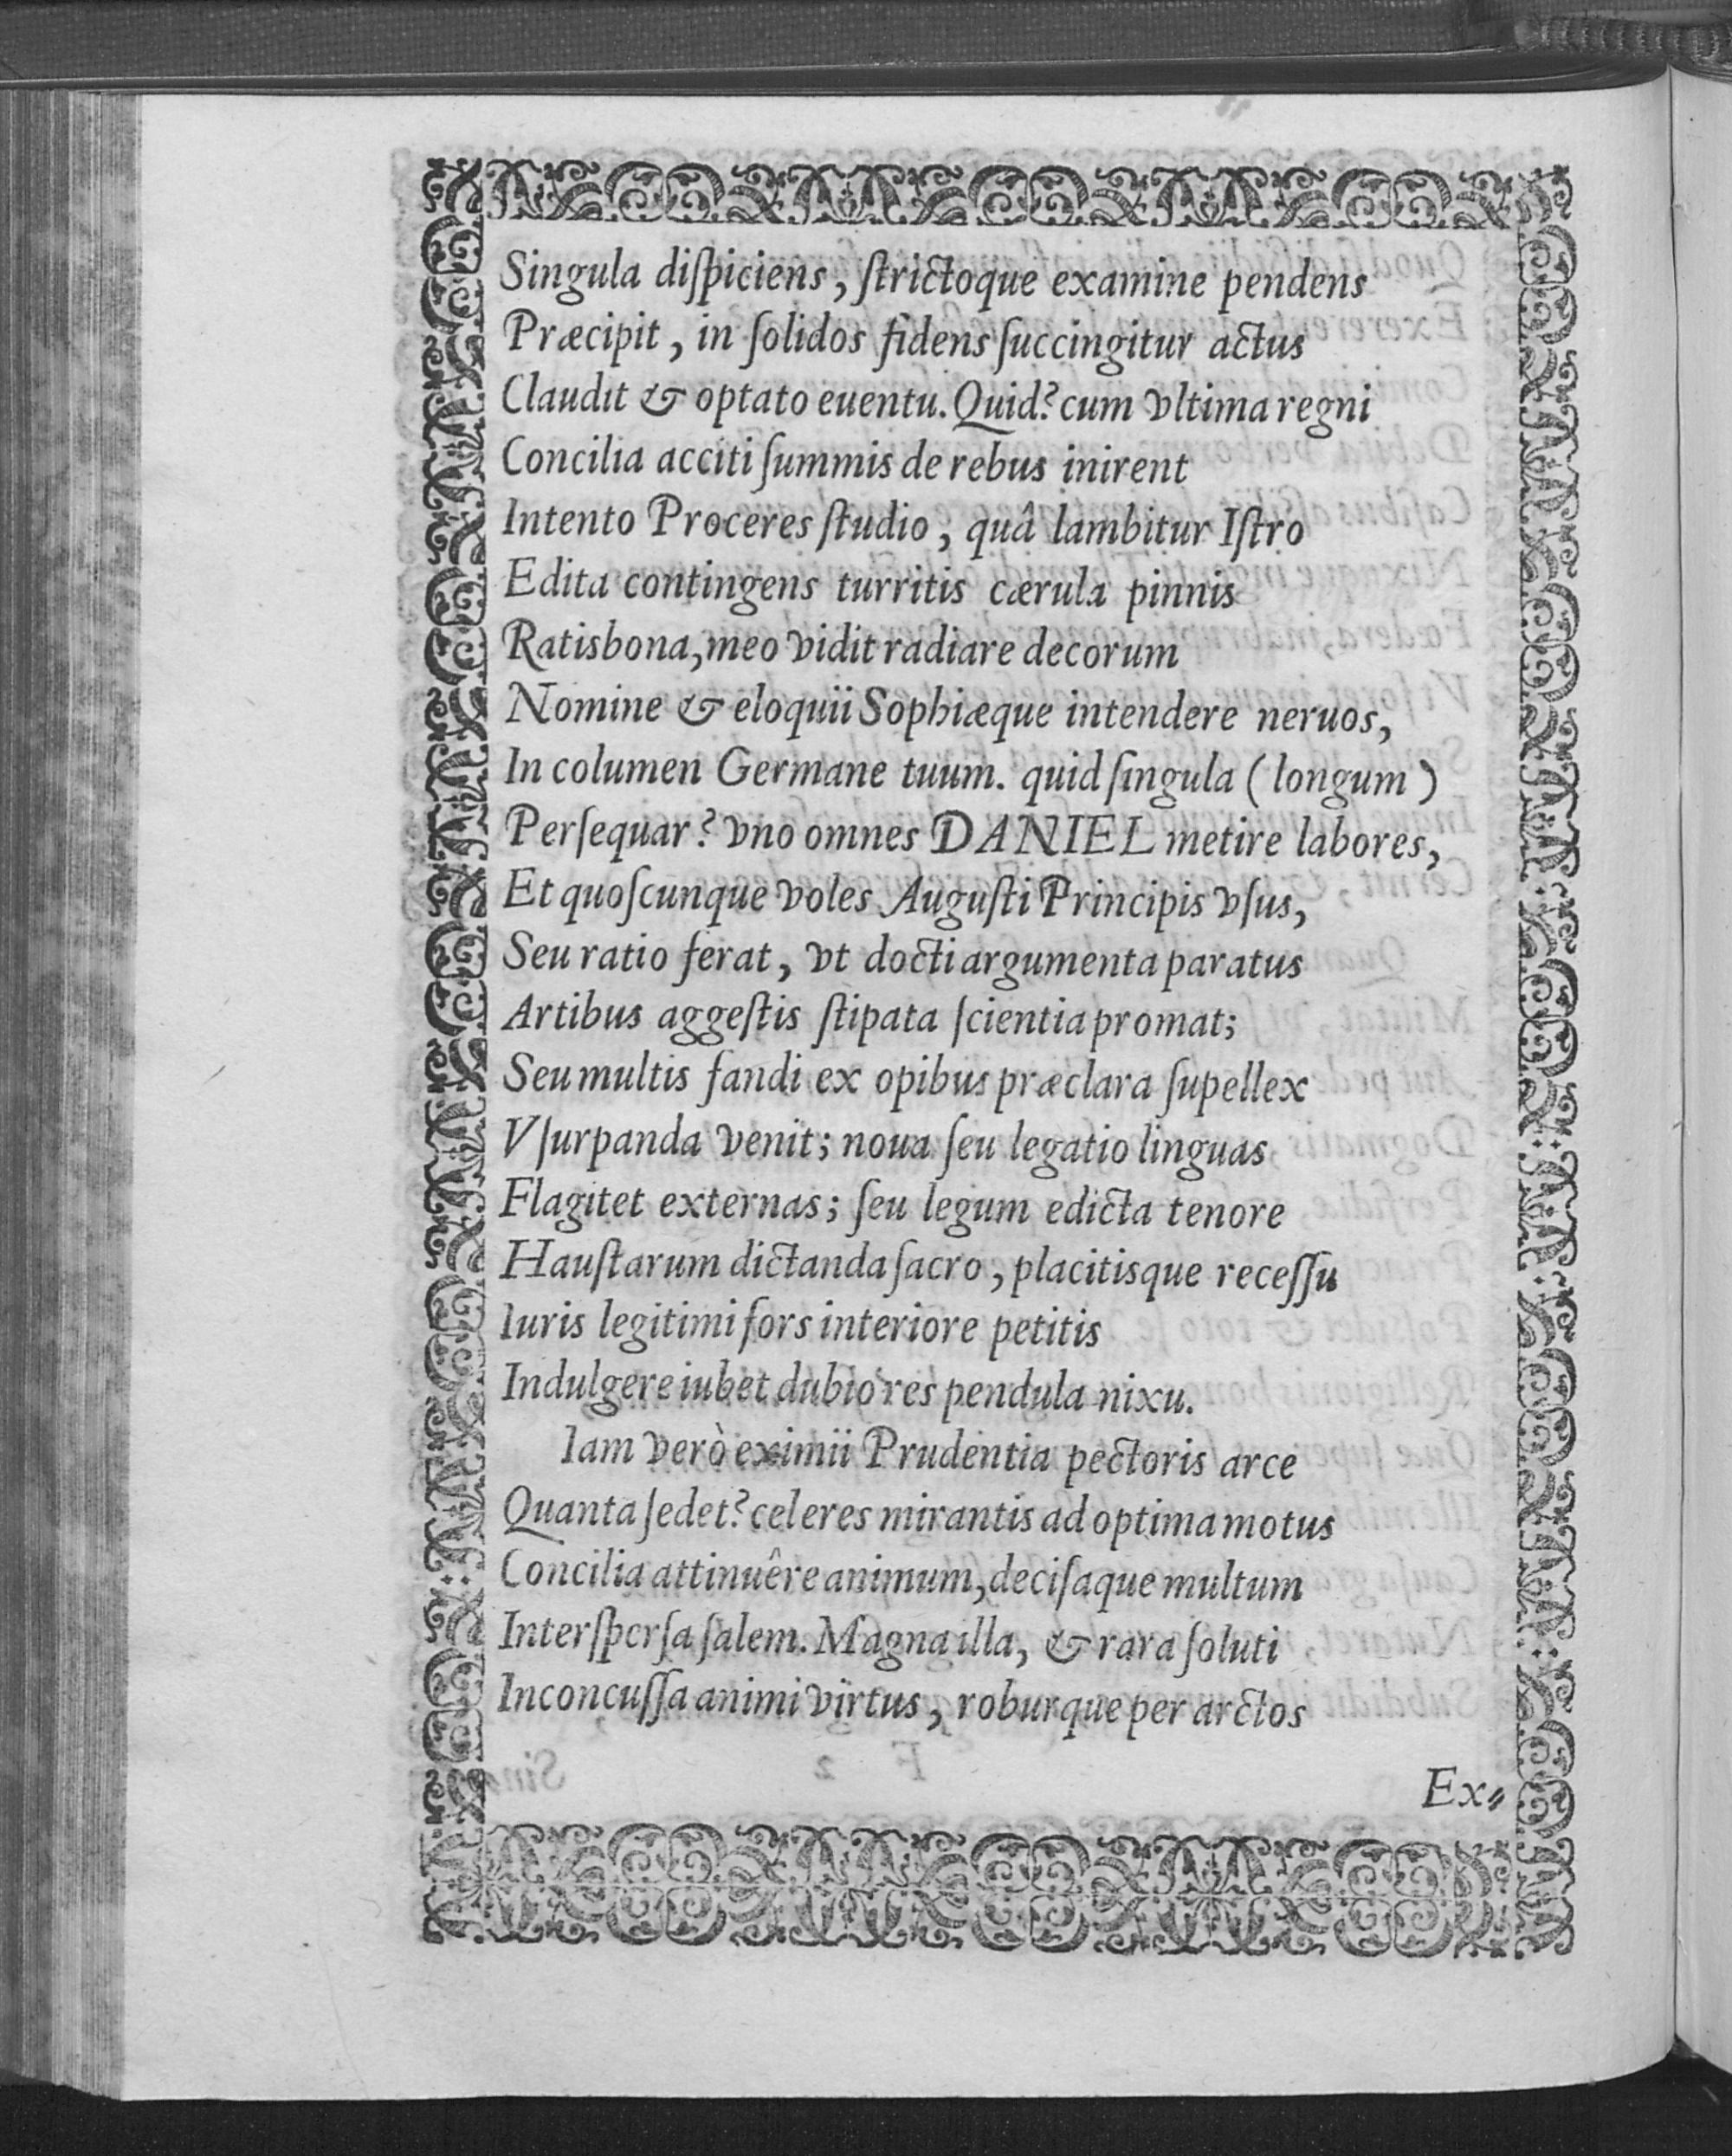 Singula diſpiciens, ſtrictoque examine pendens
Præcipit, in ſolidos fidens ſuccingitur actus
Claudit & optato euentu. Quid? cum vltima regni
Concilia acciti ſummis de rebus inirent
Intento Proceres ſtudio, quâ lambitur Iſtro
Edita contingens turritis cærula pinnis
Ratisbona, meo vidit radiare decorum
Nomine & eloquii Sophiæque intendere neruos,
In columen Germane tuum. quid ſingula (longum)
Perſequar? vno omnes DANIEL metire labores,
Et quoſcunque voles Auguſti Principis vſus,
Seu ratio ferat, vt docti argumenta paratus
Artibus aggeſtis ſtipata ſcientia promat;
Seu multis fandi ex opibus præclara ſupellex
Vſurpanda venit; noua ſeu legatio linguas
Flagitet externas; ſeu legum edicta tenore
Hauſtarum dictanda ſacro, placitisque receſſu
Iuris legitimi fors interiore petitis
Indulgere iubet dubio res pendula nixu.
Iam verò eximii Prudentia pectoris arce
Quanta ſedet? celeres mirantis ad optima motus
Concilia attinuêre animum, deciſaque multum
Interſperſa ſalem. Magna illa, & rara ſoluti
Inconcuſſa animi virtus, roburque per arctos
Ex⸗